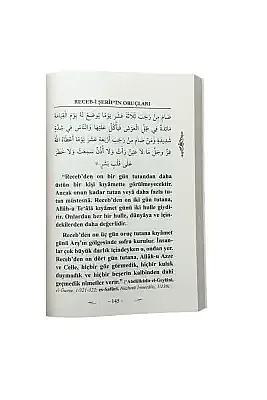 RECEB-İ ŞERİF'İN ORUÇLARI
صَامَ مِنْ رَجَبَ ثَلَاثَةَ عَشَرَ يَوْمًا يُوضَعُ لَهُ يَوْمَ الْقِيَامَةِ
مَائِدَةٌ فِي ظِلِّ الْعَرْشِ فَيَأْكُلُ عَلَيْهَا وَالنَّاسُ فِي شِدَّةٍ
شَدِيدَةٍ وَمَنْ صَامَ مِنْ رَجَبَ أَرْبَعَةَ عَشَرَ يَوْمًا أَعْطَاهُ اللهُ
عَزَّ وَجَلَّ مَا لَا عَيْنٌ رَأَتْ وَلَا أُذُنٌ سَمِعَتْ وَلَا خَطَرَ
عَلَى قَلْبِ بَشَرٍ
"Receb'den on bir gün tutandan daha
üstün bir kişi kıyâmette görülmeyecektir.
Ancak onun kadar tutan veyâ daha fazla tu-
tan müstesnâ. Receb'den on iki gün tutana,
Allâh-u Te'âlâ kıyâmet günü iki hulle giydi-
rir. Onlardan her bir hulle, dünyâya ve için-
dekilerden daha değerlidir.
Receb'den on üç gün oruç tutana kıyâmet
günü Arş'ın gölgesinde sofra kurulur. İnsan-
lar çok büyük darlık içindeyken o, ondan yer.
Receb'den on dört gün tutana, Allâh-u Azze
ve Celle, hiçbir göz görmedik, hiçbir kulak
duymadık ve hiçbir beşerin kalbinden dahi
geçmedik nimetler verir." (Abdülkâdir el-Geylânî,
el-Ğunye, 1/321-322; es-Safûrî,
- 145 -